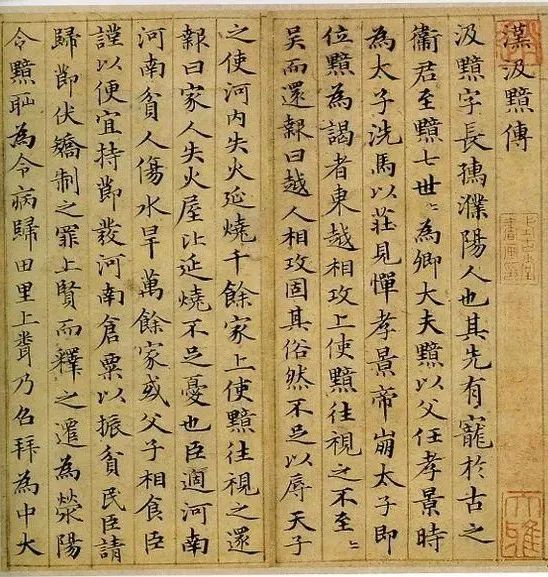 漢汲黯傳
汲黯字長孺濮陽人也其先有寵於古之
衛君至黯七世〻為卿大夫黯以父任孝景時
為太子洗馬以莊見憚孝景帝崩太子即
位黯為謁者東越相攻上使黯往視之不至〻
吴而還報曰越人相攻固其俗然不足以辱天子
之使河内失火延燒千餘家上使黯往視之還
報曰家人失火屋比延燒不足憂也臣適河南
河南貧人傷水旱萬餘家或父子相食臣
謹以便宜持節發河南倉粟以振貧民臣請
歸節伏矯制之罪上賢而釋之遷為滎陽
令黯耻為令病歸田里上聞乃召拜為中大
大雅